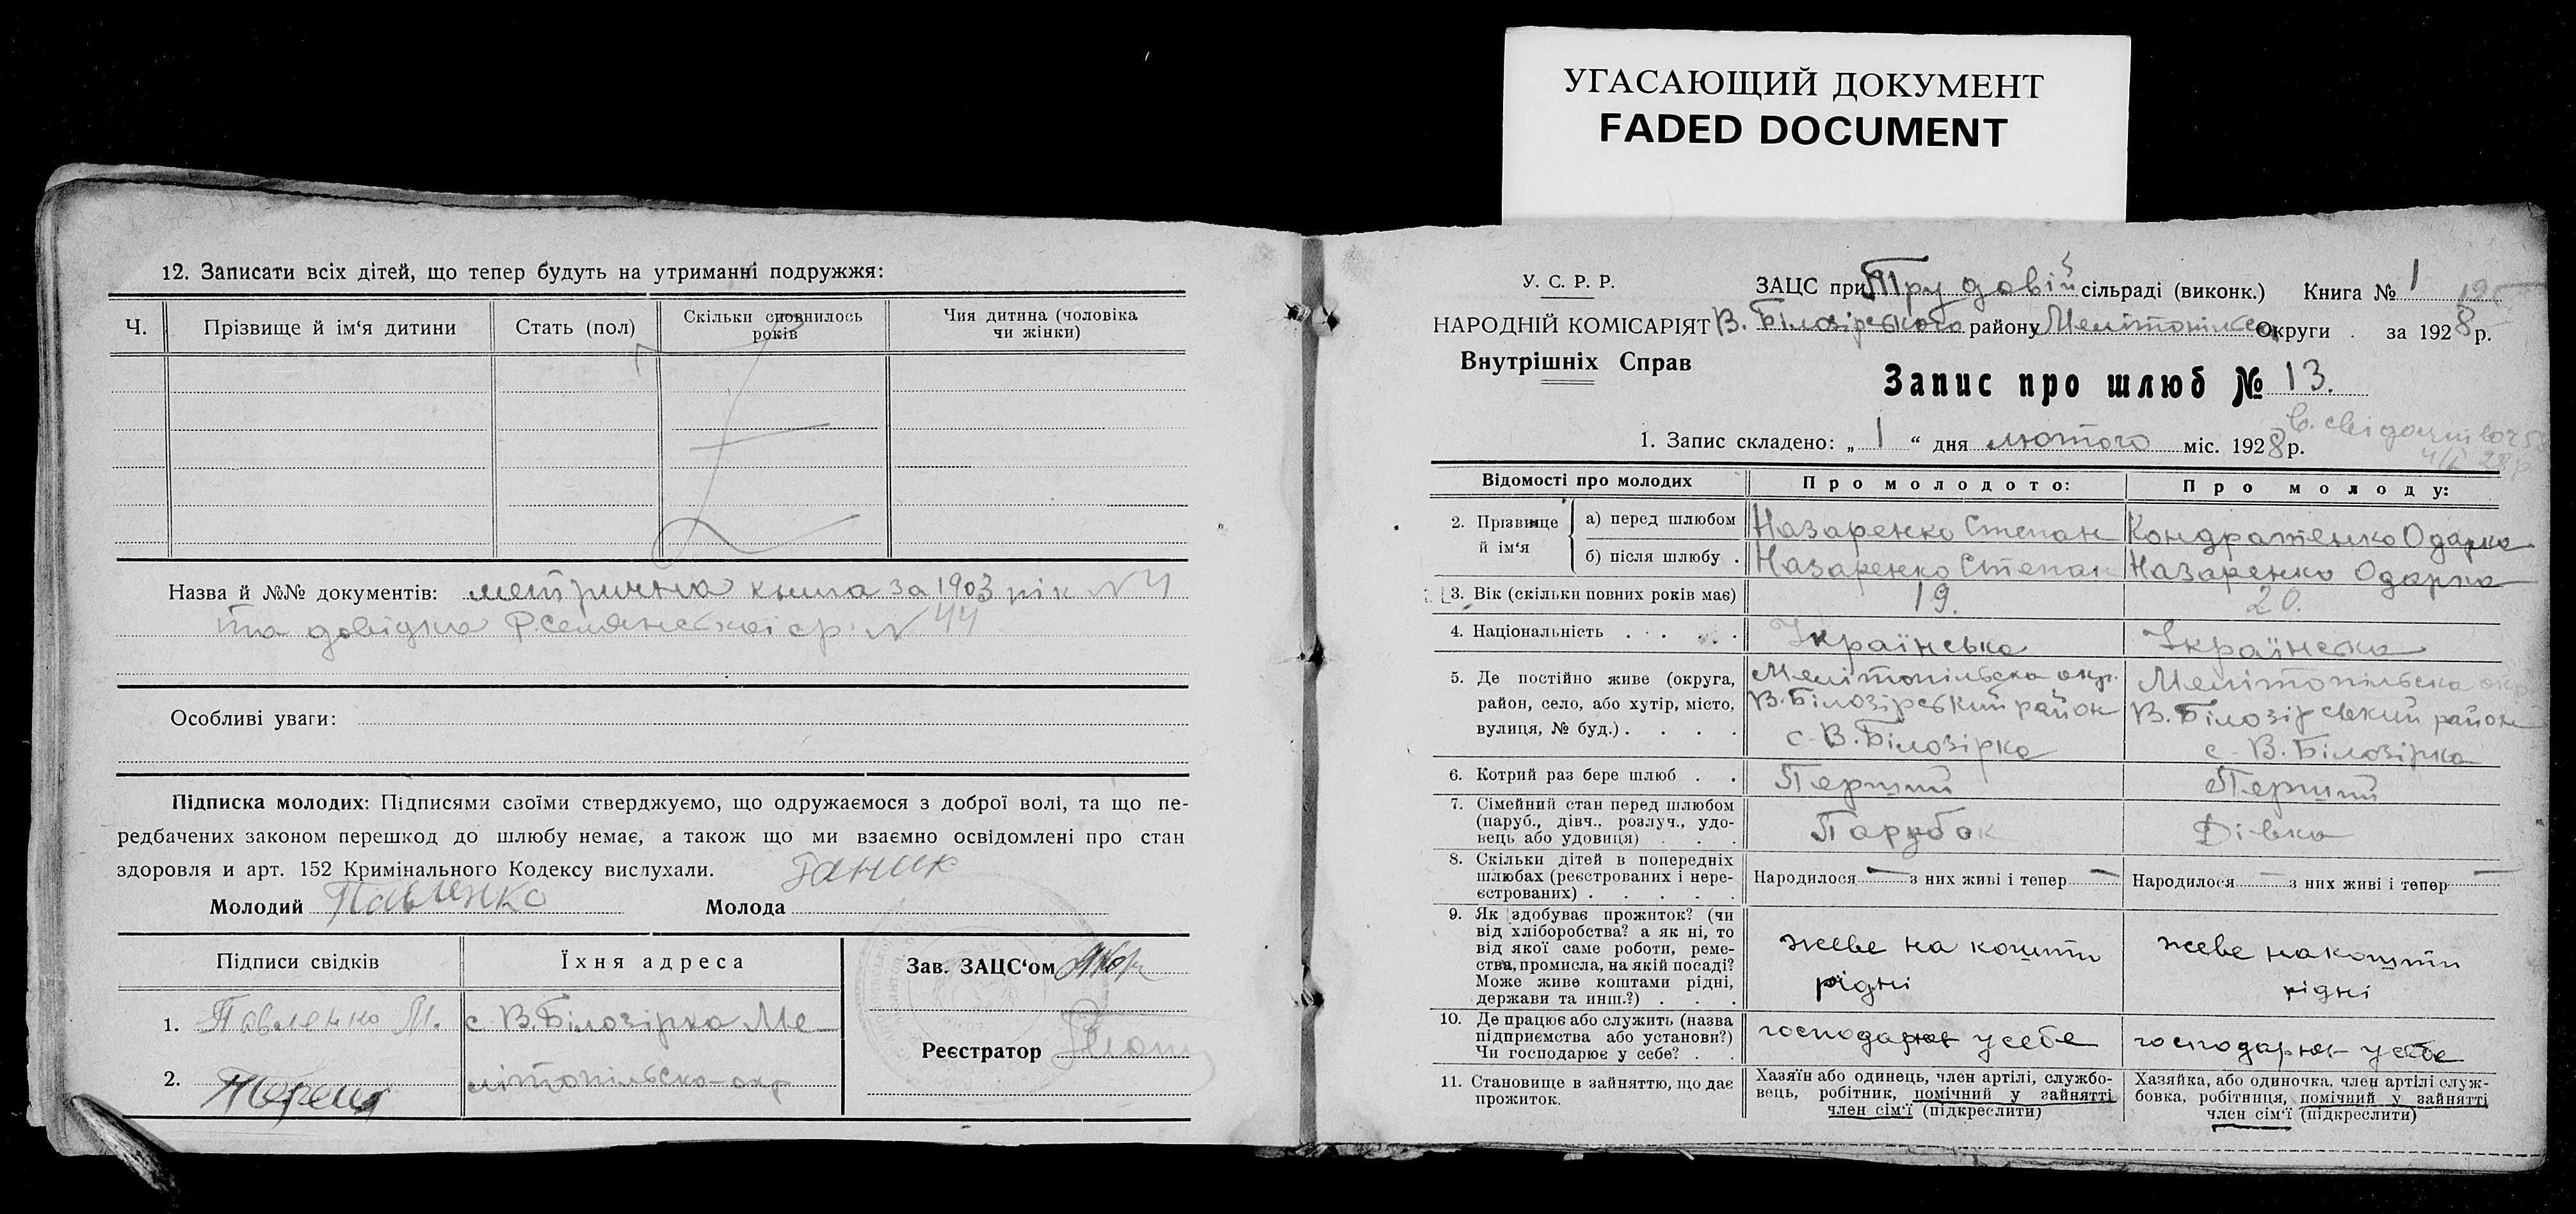 УГАСАЮЩИЙ ДОКУМЕНТ
FADED DOCUMENT
12. Записати всіх дітей, що тепер будуть на утриманні подружжя:
Ч. Прізвище й ім‘я дитини Стать (пол) Скільки сповнилось років Чия дитина (чоловіка чи жінки)
Назва й №№ документів: метрична книга за 1903 рік N 4
та довідка Р. Селянської с.р. N 44
Особливі уваги:
Підписка молодих: Підписями своїми стверджуємо, що одружаємося з доброї волі, та що пе-
редбачених законом перешкод до шлюбу немає, а також що ми взаємно освідомлені про стан
здоровля и арт. 152 Кримінального Кодексу вислухали.
Молодий Павленко Молода
Підписи свідків Їхня адреса
Зав. ЗАЦС‘ом
1. Павленко М. с В. Білозірка Ме-
Реєстратор
2. літопільська окр
У. С. Р. Р.
НАРОДНІЙ КОМІСАРІЯТ
Внутрішніх Справ
ЗАЦС при Трудовій сільраді (виконк.) Книга № 1
В. Білозірського району Мелітопільсь Округи . за 1928 р.
Запис про шлюб № 13.
1. Запис складено: „ 1 “ дня лютого міс. 1928 р.
Відомості про молодих Про молодого: Про молоду:
2. Прізвище й ім‘я
а) перед шлюбом Назаренко Степан Кондратенко Одарка
б) після шлюбу . Назаренко Степан Назаренко Одарка
3. Вік (скільки повних років має) 19. 20.
4. Національність . . . . Українська Українська
5. Де постійно живе (округа, Мелітопільська окр. Мелітопільська окр
район, село, або хутір, місто, В. Білозірський район В. Білозірський район
вулиця, № буд.) . . . . с. В. Білозірка с. В. Білозірка
6. Котрий раз бере шлюб . . Перший Перший
7. Сімейний стан перед шлюбом
(паруб., дівч., розлуч., удо-
вець або удовиця) . . . Парубок Дівка
8. Скільки дітей в попередніх
шлюбах (реєстрованих і нере-
єстрованих) . . . . .
Народилося — з них живі і тепер — Народилося — з них живі і тепер —
9. Як здобуває прожиток? (чи
від хліборобства? а як ні, то
від якої саме роботи, реме-
ства, промисла, на якій посаді?
Може живе коштами рідні,
держави та инш.?) . . .
жеве на кошти рідні жеве на кошти рідні
10. Де працює або служить (назва
підприємства або установи?)
Чи господарює у себе? . .
господарює у себе господарює у себе
11. Становище в зайняттю, що дає
прожиток.
Хазяїн або одинець, член артілі, службо-
вець, робітник, помічний у зайнятті
член сім‘ї (підкреслити)
Хазяйка, або одиночка, член артілі служ-
бовка, робітниця, помічний у зайнятті
член сім‘ї (підкреслити)